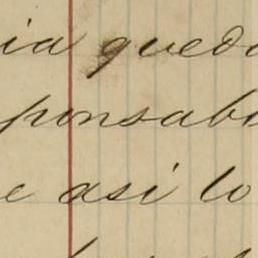 ia queda
ponsab
e asi lo